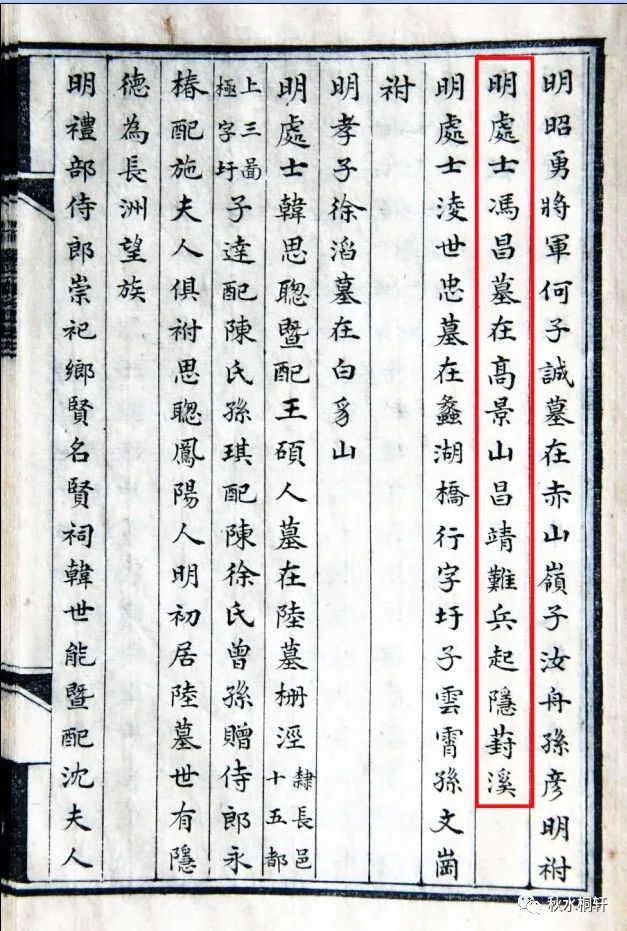 明昭勇將軍何子誠墓在赤山嶺子汝舟孫彦明祔
明處士馮昌墓在髙景山昌靖難兵起隱葑溪
明處士淩世忠墓在蠡湖橋行字圩子雲霄孫文崗
祔
明孝子徐滔墓在白豸山
明處士韓思聰暨配王碩人墓在陸墓柵涇隸長邑十五都
上三啚極字圩子達配陳氏孫琪配陳徐氏曾孫贈侍郎永
椿配施夫人俱祔思聰鳳陽人明初居陸墓世有隱
德為長洲望族
明禮部侍郎崇祀鄉賢名賢祠韓世能暨配沈夫人
秋水桐轩